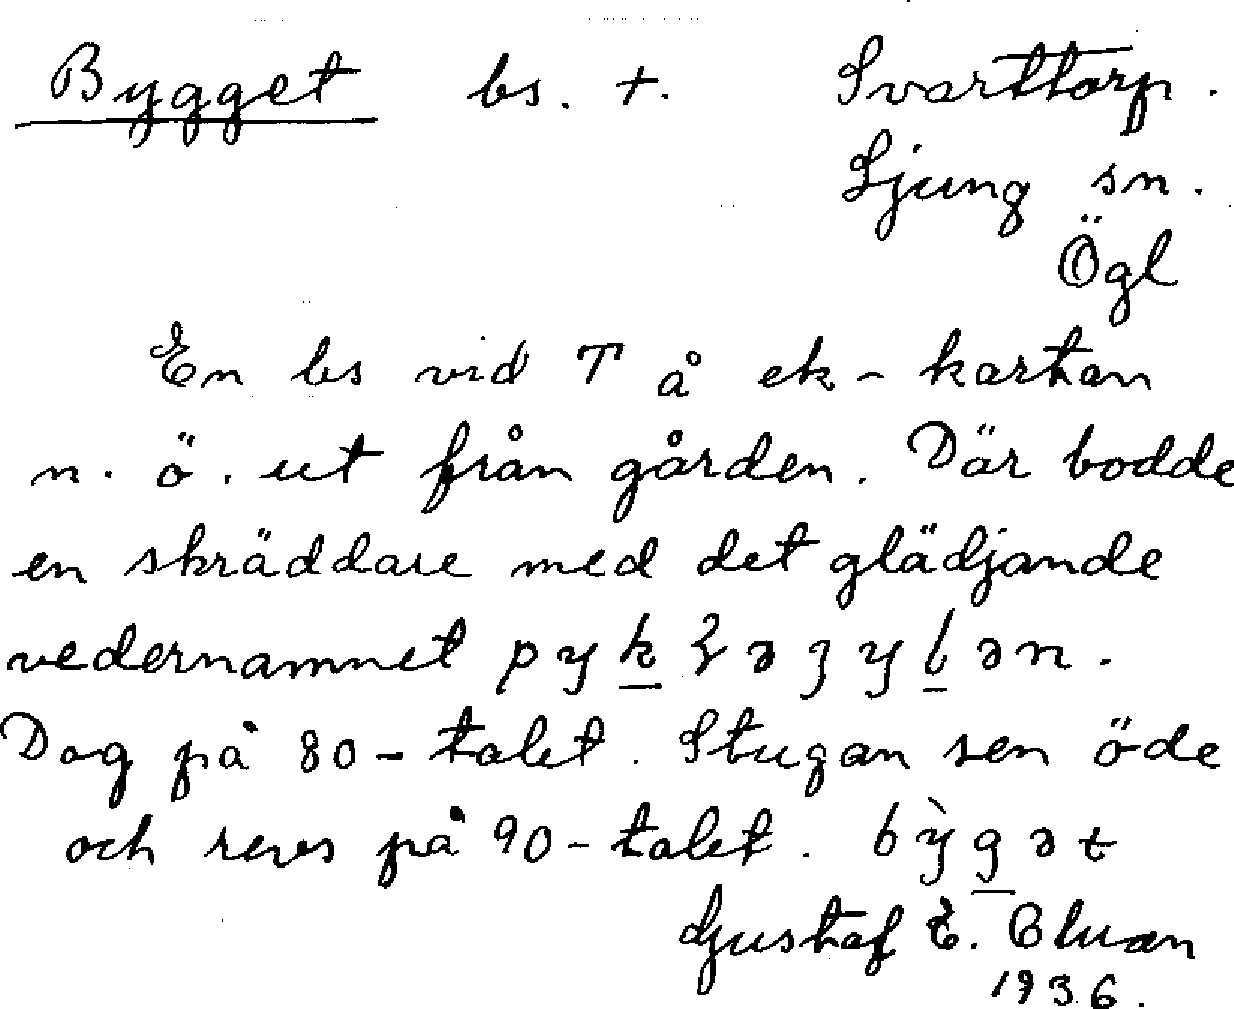 Bygget bs. +. Svarttorp.
Ljung sn.
Ögl
En bs vid T å ek-kartan
n. ö. ut från gården. Där bodde
en skräddare med det glädjande
vedernamnet
Dog på 80-talet. Stugan sen öde
och revs på 90-talet. bỳgət
Gustaf E.
1936.